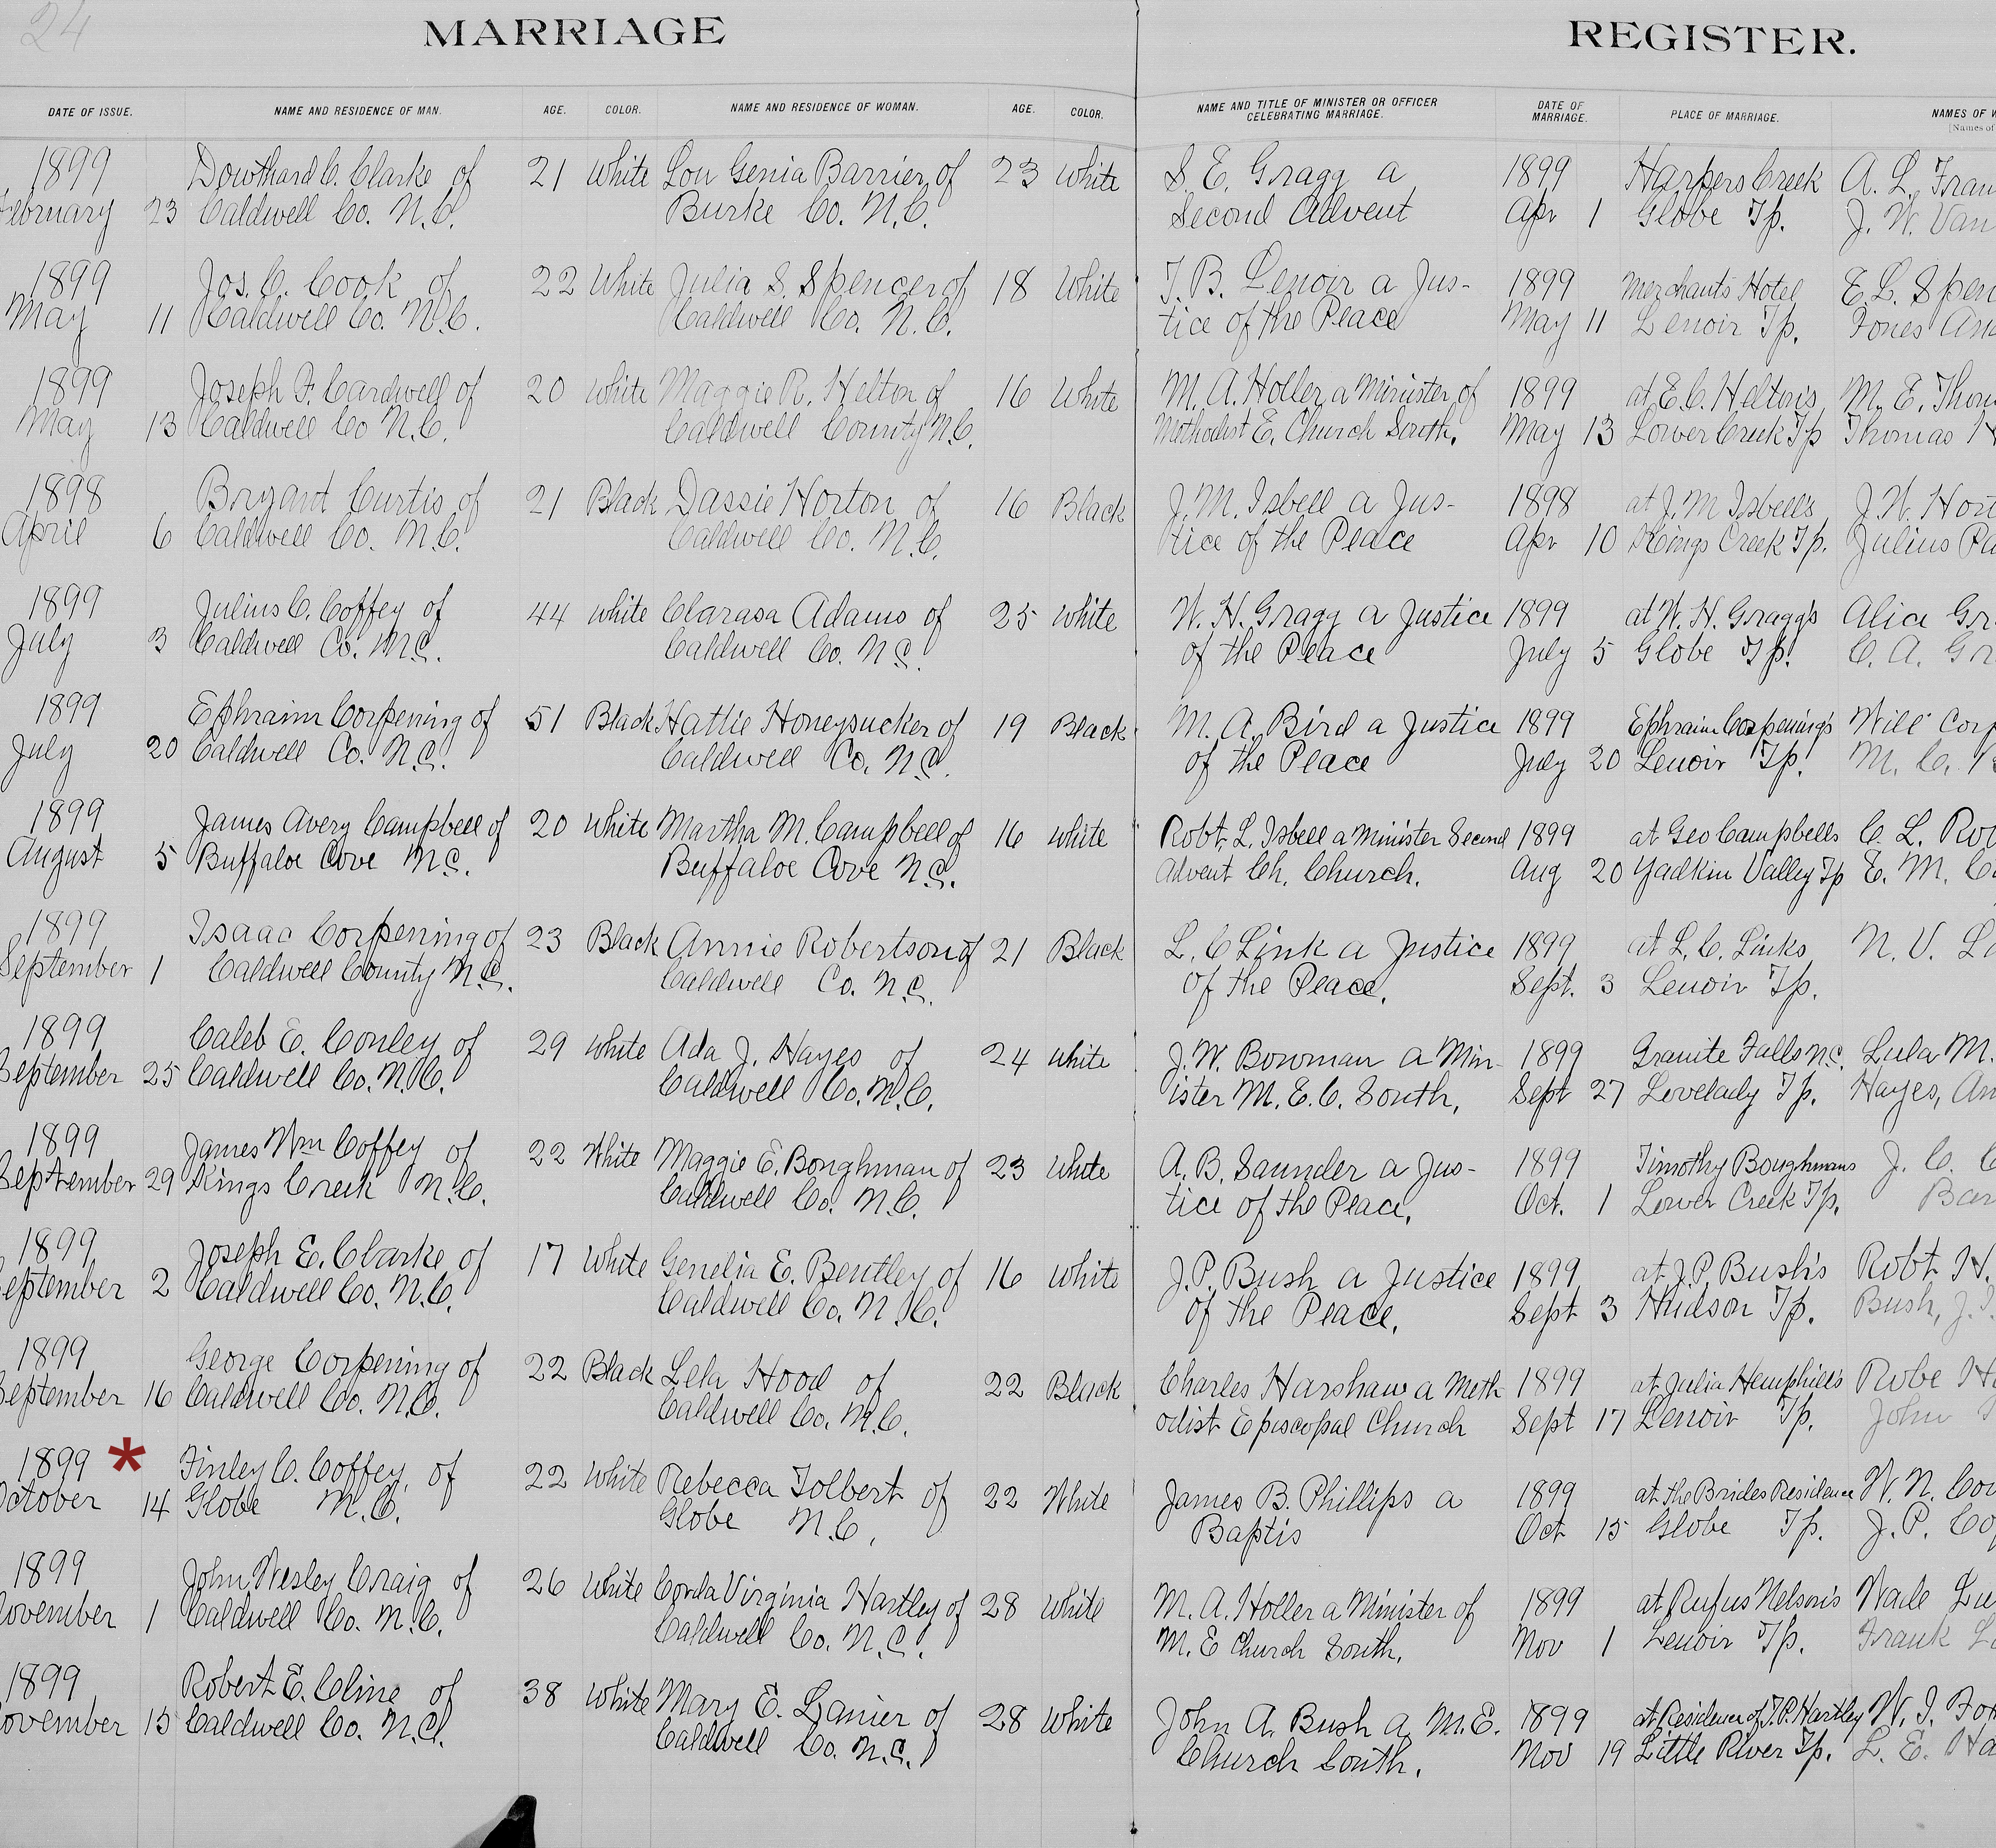 24
MARRIAGE REGISTER.
DATE OF ISSUE. NAME AND RESIDENCE OF MAN. AGE. COLOR. NAME AND RESIDENCE OF WOMAN. AGE. COLOR. NAME AND TITLE OF MINISTER OR OFFICER CELEBRATING MARRIAGE. DATE OF MARRIAGE. PLACE OF MARRIAGE. NAMES OF W
[Names of
1899 Dowthard C. Clarke of 21 White Lou Genia Barrier of 23 White S. E. Gragg a 1899 Harpers Creek A. L. Fran
February 23 Caldwell Co. N.C. Burke Co. N.C. Second Advent Apr 1 Globe Tp. J. W. Van
1899 Jos. C. Cook of 22 White Julia S. Spencer of 18 White T. B. Lenoir a Jus- 1899 Merchants Hotel E. L. Spen
May 11 Caldwell Co. N.C. Caldwell Co. N.C. tice of the Peace May 11 Lenoir Tp. Jones
1899 Joseph F. Cardwell of 20 White Maggie R. Helton of 16 White M. A. Holler a Minister of 1899 at E. C. Helton's M. E. Thom
May 13 Caldwell Co N.C. Caldwell County N.C. Methodist E. Church South. May 13 Lower Creek Tp Thomas H
1898 Bryant Curtis of 21 Black Dassie Horton of 16 Black J. M. Isbell a Jus- 1898 at J. M Isbell's J. W. Hort
April 6 Caldwell Co. N.C. Caldwell Co. N.C. tice of the Peace Apr 10 Kings Creek Tp. Julius Pa
1899 Julius C. Coffey of 44 white Clarasa Adams of 25 white W. H. Gragg a Justice 1899 at W. H. Gragg's Alice Gr
July 3 Caldwell Co. N.C. Caldwell Co. N.C. of the Peace July 5 Globe Tp. C. A. Gr
1899 Ephraim Corpening of 51 Black Hattie Honeysucker of 19 Black M. A. Bird a Justice 1899 Ephraim Corpening's Will Corp
July 20 Caldwell Co. N.C. Caldwell Co. N.C. of the Peace July 20 Lenoir Tp. M. C.
1899 James Avery Campbell of 20 White Martha M. Campbell of 16 white Robt. L. Isbell a Minister Second 1899 at Geo Campbells C. L. Ro
August 5 Buffaloe Cove N.C. Buffaloe Cove N.C. Advent Ch. Church. Aug 20 Yadkin Valley Tp E. M. C
1899 Isaac Corpening of 23 Black Annie Robertson of 21 Black L. C Link a Justice 1899 at L. C. Links N. V. L
September 1 Caldwell County N.C. Caldwell Co. N.C. of the Peace. Sept. 3 Lenoir Tp.
1899 Caleb E. Conley of 29 white Ada J. Hayes of 24 white J. W. Bowman a Min- 1899 Granite Falls N.C. Lula M.
September 25 Caldwell Co. N.C. Caldwell Co. N.C. ister M. E. C. South. Sept 27 Lovelady Tp. Hayes, An
1899 James Wm Coffey of 22 White Maggie E. Boughman of 23 White A. B. Saunder a Jus- 1899 Timothy Boughmans J. C. C
September 29 Kings Creek N.C. Caldwell Co. N.C. tice of the Peace. Oct. 1 Lower Creek Tp. Bar
1899 Joseph E. Clarke of 17 White Genelia E. Bentley of 16 white J. P. Bush a Justice 1899 at J. P. Bush's Robt. H.
September 2 Caldwell Co. N.C. Caldwell Co. N.C. of the Peace. Sept 3 Hudson Tp. Bush, J.
1899 George Corpening of 22 Black Lela Hood of 22 Black Charles Harshaw a Meth 1899 at Julia Hemphill's Robe H
September 16 Caldwell Co. N.C. Caldwell Co. N.C. odist Episcopal Church Sept 17 Lenoir Tp. John
1899 * Finley C. Coffey, of 22 White Rebecca Tolbert of 22 White James B. Phillips a 1899 at the Brides Residence W. N. Co
October 14 Globe N.C. Globe N.C. Baptis Oct 15 Globe Tp. J. P. Co
1899 John Wesley Craig of 26 White Corda Virginia Hartley of 28 White M. A. Holler a Minister of 1899 at Rufus Nelson's Wade Lu
November 1 Caldwell Co. N.C. Caldwell Co. N.C. M. E Church South. Nov 1 Lenoir Tp. Frank L
1899 Robert E. Cline of 38 White Mary E. Lanier of 28 White John A. Bush a M. E. 1899 at Residence of T. P. Hartley W. I. Fo
November 15 Caldwell Co. N.C. Caldwell Co. N.C. Church South. Nov 19 Little River Tp. L. E. Ha